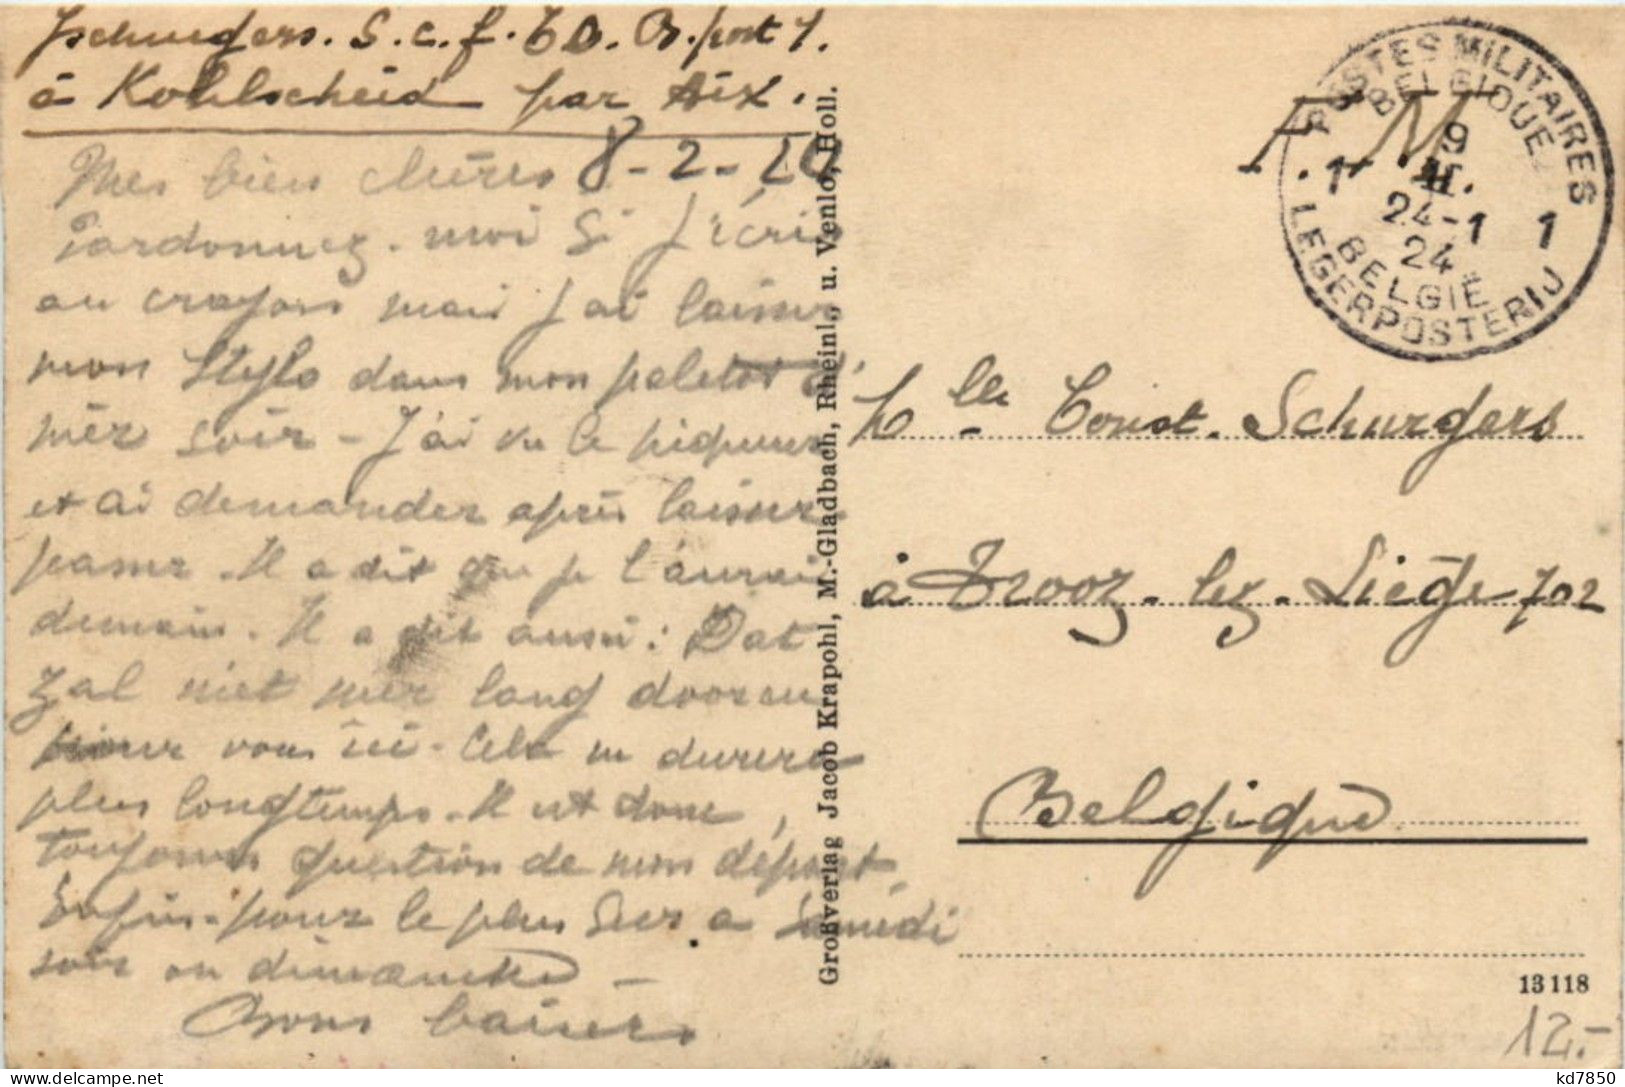 Jschurgers. S. c. f. T D. B. post 1.
à Kohlscheid par Aix.
8-2-24
Mes bien chères
Pardonnez-moi si j'écris
au crayon mais j'ai laisser
mon stylo dans mon paletot d'
hier soir - J'ai vu le piqueur
et ai demander après laisser
passer. Il a dit que je l'aurai
demain. Il a dit aussi: Dat
zal niet meer lang dooren
pour vous ici. Cela ne durera
plus longtemps. Il est donc,
toujours question de mon départ.
Enfin pour le plus sur a samedi
soir ou dimanche -
Bons baisers
Großverlag Jacob Krapohl, M.-Gladbach, Rheinl., u. Venlo, Holl.
F. M.
POSTES MILITAIRES
BELGIQUE
1 9 II. 1
24-1
24
BELGIË
LEGERPOSTERIJ
Mlle Const. Schurgers
à Trooz-lez-Liège 702
Belgique
13118
12.-
kd7850